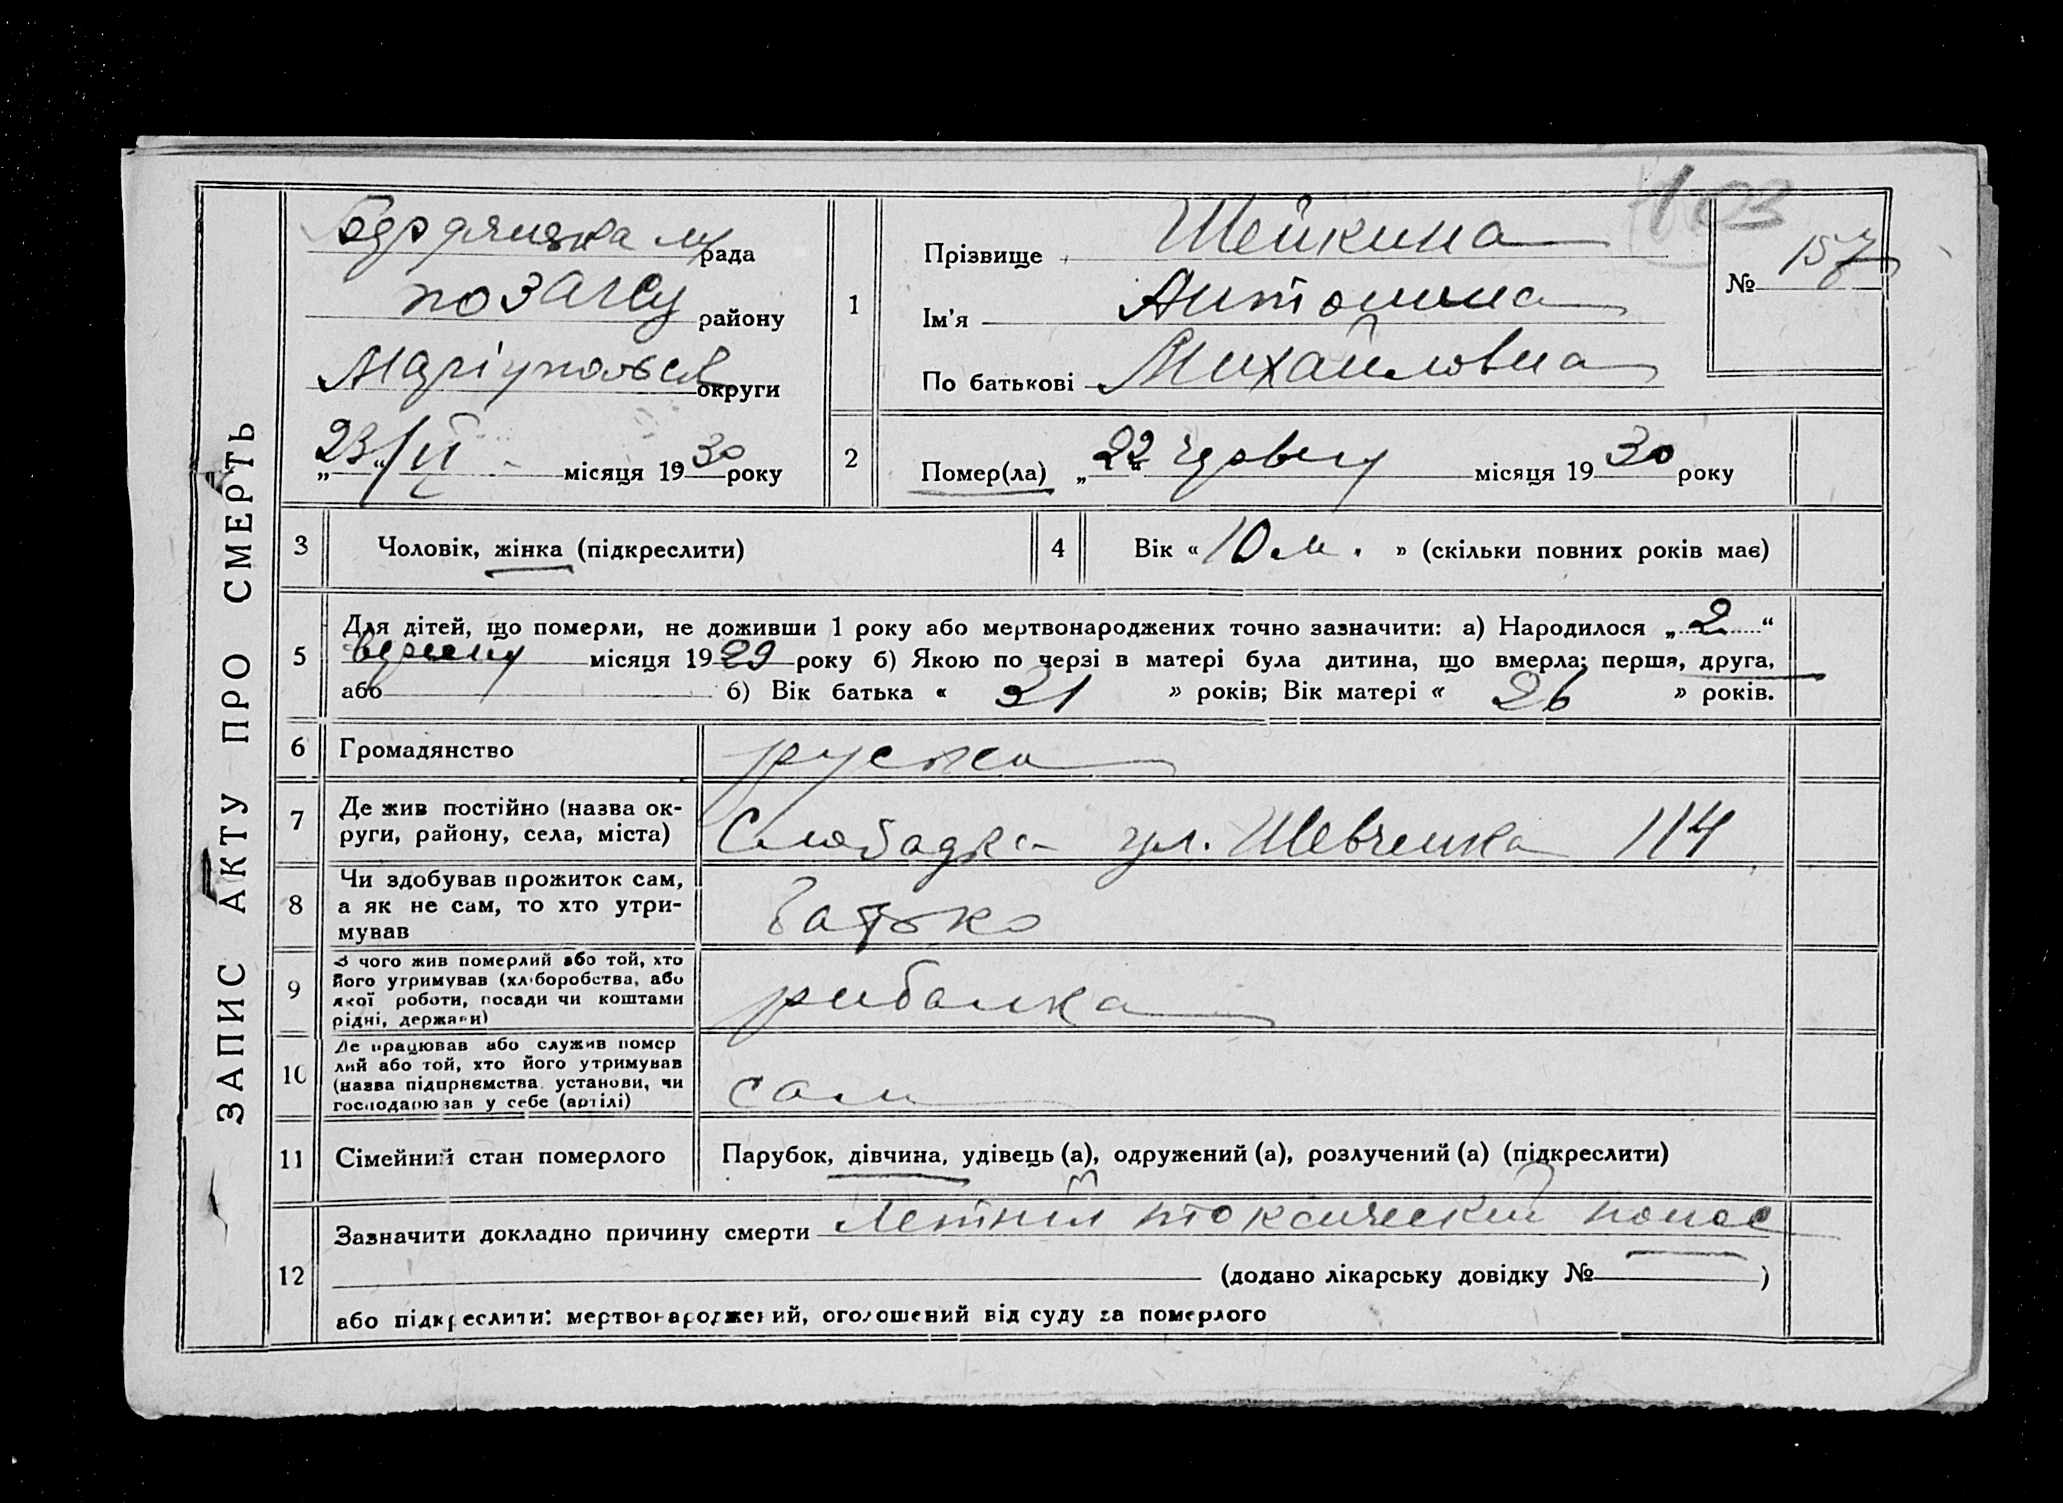 ЗАПИС АКТУ ПРО СМЕРТЬ
103
Бердянська м рада
по загсу району
Маріупольск округи
„23“ / VI місяця 1930 року
1
Прізвище Шейкина
Ім’я Антонина
По батькові Михайловна
№ 157
2
Помер(ла) „22“ червня місяця 1930 року
3
Чоловік, жінка (підкреслити)
4
Вік «10 м.» (скільки повних років має)
5
Для дітей, що померли, не доживши 1 року або мертвонароджених точно зазначити: а) Народилося „2“
місяця 1929 року б) Якою по черзі в матері була дитина, що вмерла: перша, друга,
або б) Вік батька « 31 » років; Вік матері « 26 » років.
6
Громадянство
руська
7
Де жив постійно (назва ок-
руги, району, села, міста)
Слободка ул. Шевченка 114
8
Чи здобував прожиток сам,
а як не сам, то хто утри-
мував
батько
9
З чого жив померлий або той, хто
його утримував (хліборобства, або
якої роботи, посади чи коштами
рідні, держави)
рибалка
10
Де працював або служив помер
лий або той, хто його утримував
(назва підприємства, установи, чи
господарював у себе (артілі)
сам
11
Сімейний стан померлого
Парубок, дівчина, удівець (а), одружений (а), розлучений (а) (підкреслити)
12
Зазначити докладно причину смерти Летний токсический понос
(додано лікарську довідку № )
або підкреслити: мертвонароджений, оголошений від суду за померлого